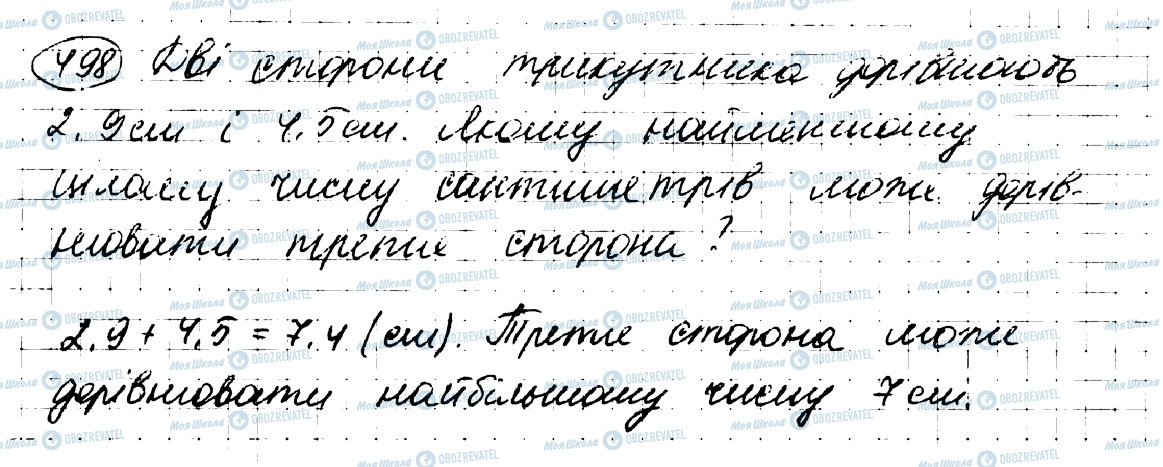 498 Дві сторони трикутника дорівнюють
2.9 см і 4.5 см. Якому найменшому
цілому числу сантиметрів може дорів-
нювати третя сторона?
2.9 + 4.5 = 7.4 (см). Третя сторона може
дорівнювати найбільшому числу 7 см.